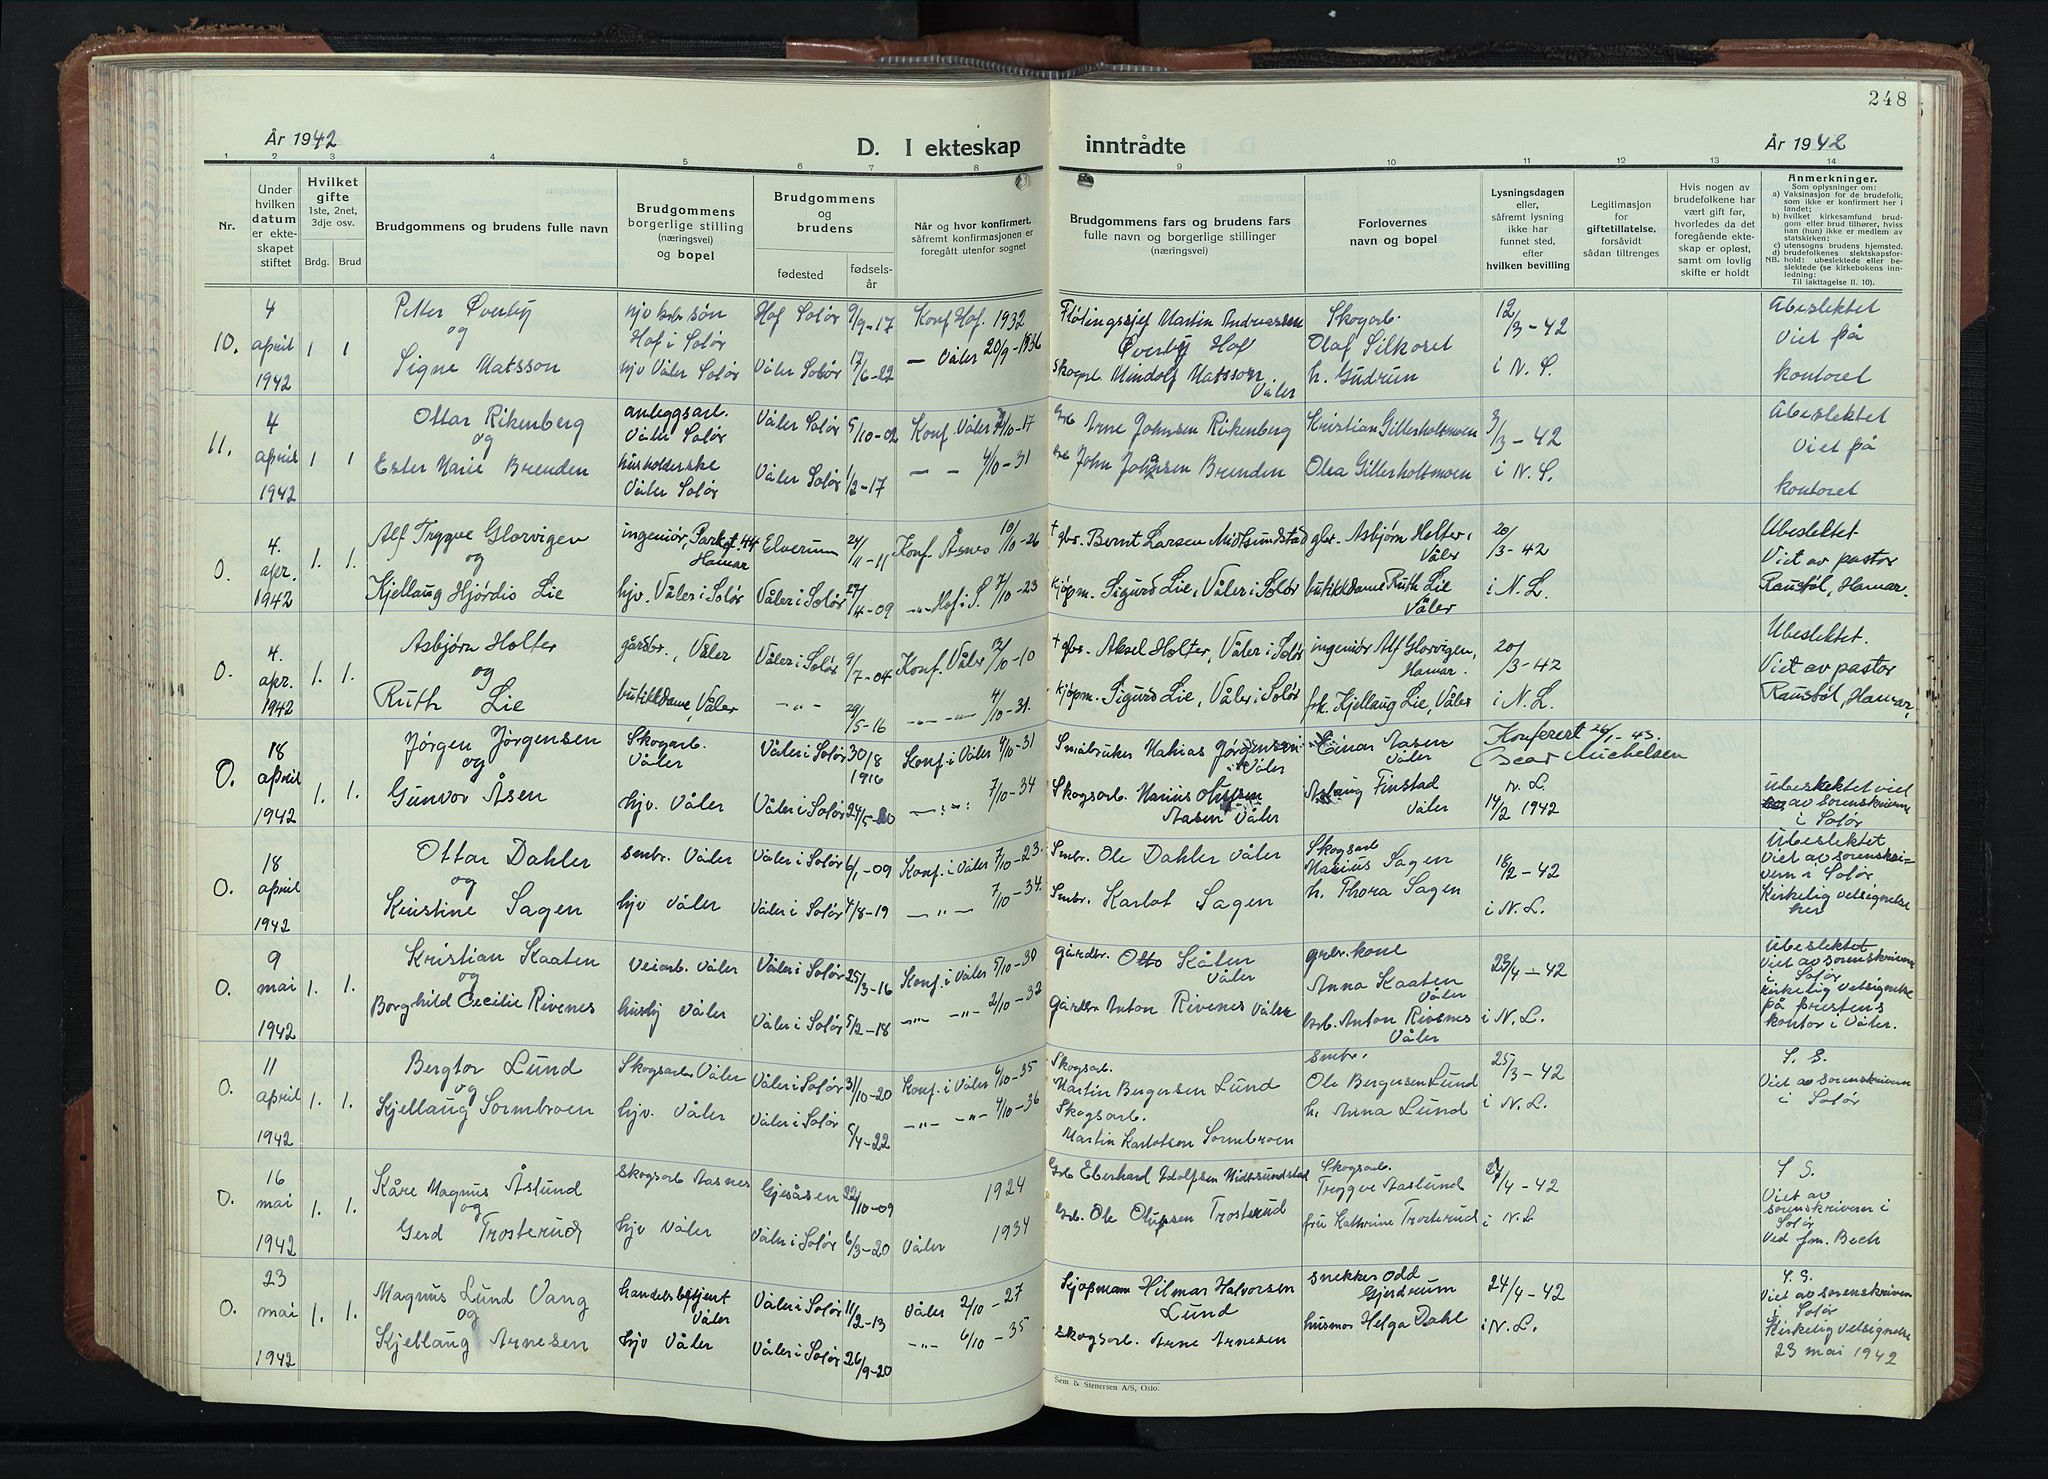 248
År 1942
D. I ekteskap inntrådte
År 1942
1 2 3 4 5 6 7 8 9 10 11 12 13 14
Nr.
Under hvilken datum er ekteskapet stiftet
Hvilket gifte 1ste, 2net, 3dje osv.
Brdg. Brud
Brudgommens og brudens fulle navn
Brudgommens borgerlige stilling (næringsvei) og bopel
Brudgommens og brudens
fødested
fødselsår
Når og hvor konfirmert, såfremt konfirmasjonen er foregått utenfor sognet
Brudgommens fars og brudens fars fulle navn og borgerlige stillinger (næringsvei)
Forlovernes navn og bopel
Lysningsdagen eller, såfremt lysning ikke har funnet sted, efter hvilken bevilling
Legitimasjon for giftetillatelse, forsåvidt sådan tiltrenges
Hvis nogen av brudefolkene har vært gift før, hvorledes da det foregående ekteskap er opløst, samt om lovlig skifte er holdt
Anmerkninger.
Som oplysninger om:
a) Vaksinasjon for de brudefolk, som ikke er konfirmert her i landet;
b) hvilket kirkesamfund brudgom eller brud tilhører, hviss han (hun) ikke er medlem av statskirken;
c) utensogns brudens hjemsted.
d) brudefolkenes slektskapsforhold: ubeslektede eller beslektede (se kirkebokens innledning:
NB.
Til iakttagelse II. 10).
10. 4 april 1942 1 1
Petter Øverby og Signe Matsson
Hof i Solør
hjv Våler Solør
Hof Solør 9/9-17
Våler Solør 17/6-22
Konf Hof. 1932
— Våler 20/9-1936
Fløtingssjef Martin Andreassen Øverby Hof
Skogarb. Mindolf Matsson Våler
Skogarb. Olaf Silkoset
h. Gudrun
12/3-42 i N. S.
Ubeslektet Viet på kontoret
11. 4 april 1942 1 1
Ottar Rikenberg og Ester Marie Brenden
anleggsarb. Våler Solør
husholderske Våler Solør
Våler Solør 5/10-02
Våler Solør 1/2-17
Konf Våler 7/10-17
— — 4/10-31
Arne Johnsen Rikenberg
John Johnsen Brenden
Kristian Gillerholtmoen
Olea Gillerholtmoen
3/3-42 i N. S.
Ubeslektet Viet på kontoret
0. 4. apr. 1942 1. 1.
Alf Trygve Glorvigen og Kjellaug Hjørdis Lie
ingeniør, Parkgt. 44 Hamar
hjv. Våler i Solør
Elverum 24/11-11
Våler i Solør 27/4-09
Konf. Åsnes 10/10-26
—"— Hof i S. 7/10-23
† gbr. Bernt Larsen Midtsundstad
kjøpm. Sigurd Lie, Våler i Solør
gbr. Asbjørn Holter, Våler
butikkdame Ruth Lie Våler
20/3-42 i N. L.
Ubeslektet Viet av pastor Raustøl, Hamar.
0. 4. apr. 1942 1. 1.
Asbjørn Holter og Ruth Lie
gårdbr., Våler
butikkdame, Våler
Våler i Solør 9/7-04
—"— 29/5-16
Konf. Våler 13/10-10
—"— —"— 4/10-31.
† gbr. Aksel Holter, Våler i Solør
kjøpm. Sigurd Lie, Våler i Solør
ingeniør Alf Glorvigen, Hamar.
frk. Kjellaug Lie, Våler
20/3-42 i N. L.
Ubeslektet. Viet av pastor Raustøl, Hamar,
0. 18 april 1942 1. 1.
Jørgen Jørgensen og Gunvor Åsen
Skogarb. Våler
hjv. Våler
Våler i Solør 30/8 1916
Våler i Solør 24/5-20
Konf. i Våler 4/10-31
—:"—: 7/10-34
Småbruker Mathias Jørgensen Våler
Skogsarb. Marius Olufsen Aasen Våler
Einar Aasen Våler
Aslaug Finstad Våler
Konferert 26/1-43. Oscar Michelsen
N. L. 14/2 1942
Ubeslektet viet av sorenskriveren i Solør
0. 18 april 1942
Ottar Dahler og Kristine Sagen
smbr. Våler
hjv Våler
Våler i Solør 6/1-09
Våler i Solør 4/8-19
Konf. i Våler 7/10-23.
—"— 7/10-34.
Smbr. Ole Dahler Våler
Smbr. Karlot Sagen
Skogsarb Marius Sagen
h. Thora Sagen
18/2-42 i N. L.
Ubeslektet Viet av sorenskrivern i Solør Kirkelig velsignelse her
0. 9 mai 1942 1. 1.
Kristian Kaaten og Borghild Cecilie Rivenes
Veiarb. Våler
Våler
Våler i Solør 25/3-16
Våler i Solør 5/2-18
Konf. i Våler 5/10-30
—"— —"— 2/10-32
gårdbr. Otto Kåten Våler
gårdbr Anton Rivenes Våler
grbr. kone Anna Kaaten Våler
Grb. Anton Rivenes Våler
23/4-42 i N. L.
Ubeslektet Viet av sorenskriveren i Solør Kirkelig velsignelse på prestens kontor i Våler.
0. 11 april 1942 1. 1.
Bergtor Lund og Kjellaug Sormbroen
Skogsarb Våler
hjv. Våler
Våler i Solør 31/10-20
Våler i Solør 5/4-22
Konf. i Våler 6/10-35
—"— —"— 4/10-36
Skogsarb. Martin Bergersen Lund
Skogsarb. Martin Karlotsen Sormbroen
smbr. Ole Bergersen Lund
h. Anna Lund
25/3-42 i N. L.
S. S. Viet av sorenskriveren i Solør
0. 16 mai 1942 1. 1.
Kåre Magnus Åslund og Gerd Trosterud
skogsarb Aasnes
hjv Våler
Gjesåsen 22/10-09
Våler i Solør 6/3-20
1924
Våler 1934
Grb Eberhard Adolfsen Midtsundstad
Grb. Ole Olufsen Trosterud
Skogsarb. Trygve Aaslund
fru Kathrine Trosterud
27/4-42 i N. L.
S. S. Viet av sorenskriveren i Solør Ved fm. Bech
0. 23 mai 1942 1. 1.
Magnus Lund Vang og Kjellaug Arnesen
handelsbetjent Våler
hjv Våler
Våler i Solør 11/2-13
Våler i Solør 26/9-20
Våler 2/10-27
—"— 6/10-35
Kjøpmann Hilmar Halvorsen Lund
skogsarb. Arne Arnesen
snekker Odd Gjerdrum
husmor Helga Dahl
24/4-42 i N. L.
S. S. Viet av sorenskriveren i Solør Kirkelig velsignelse 23 mai 1942
Sem & Stenersen A/S, Oslo.